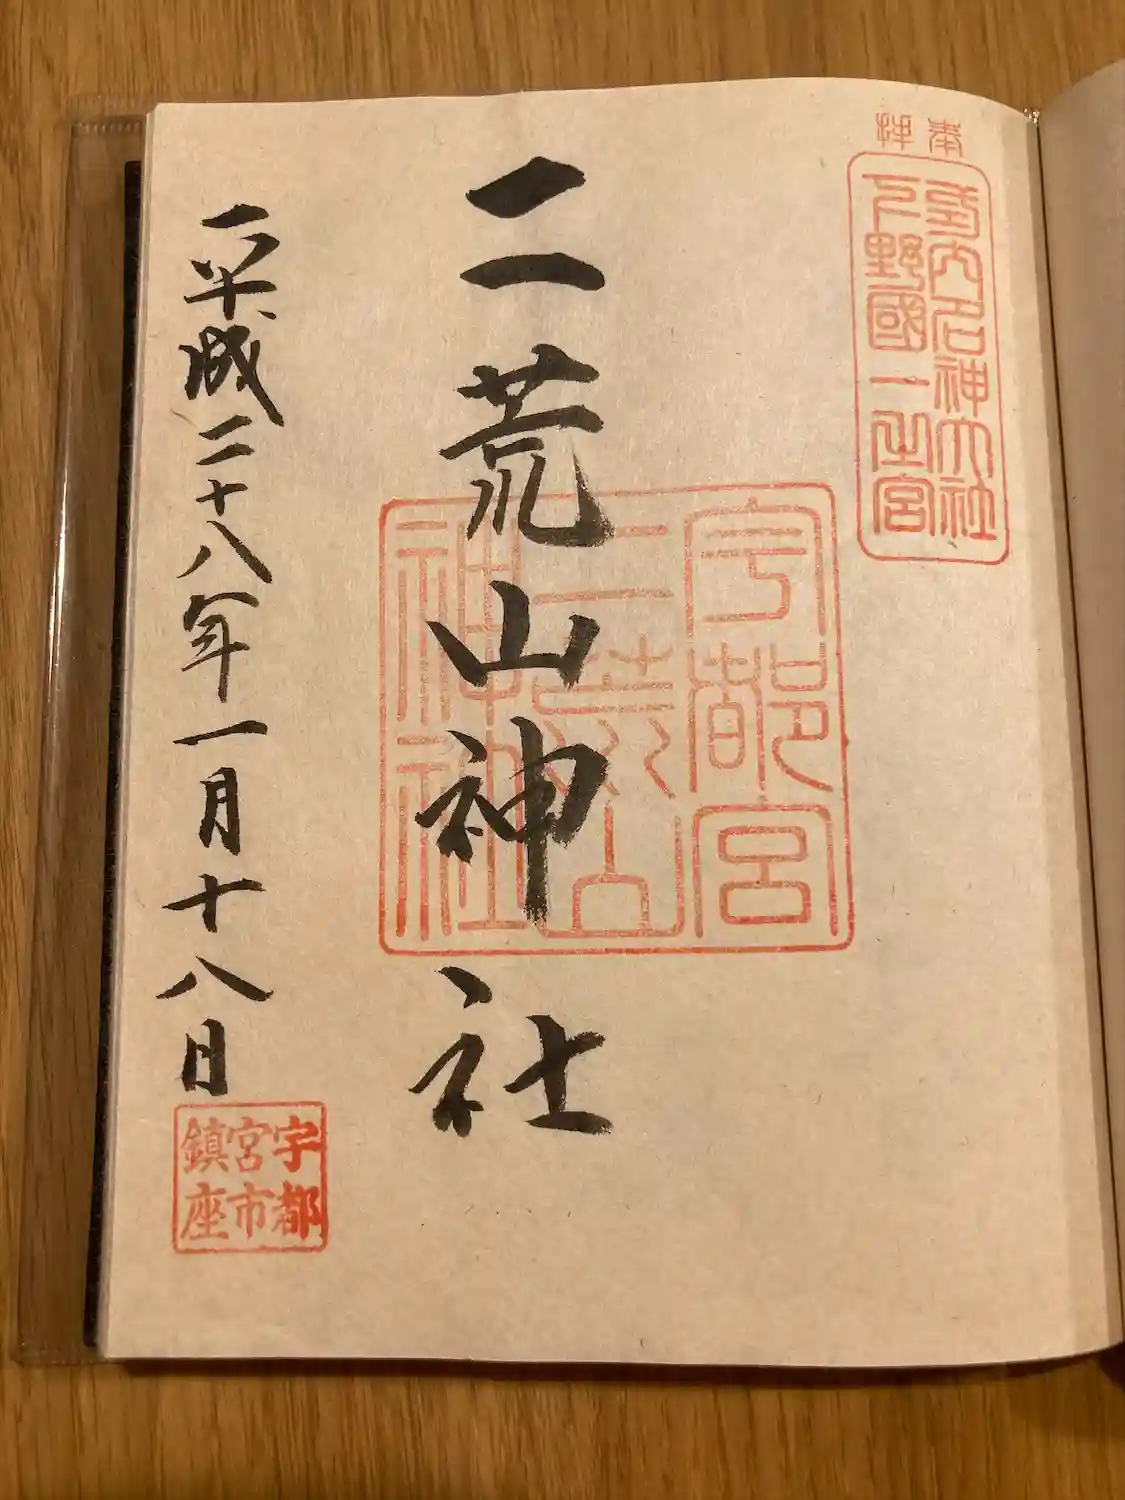 奉拝
式内名神大社
下野國一之宮
宇都宮
二荒山
神社
二荒山神社
平成二十八年一月十八日
宇都
宮市
鎮座